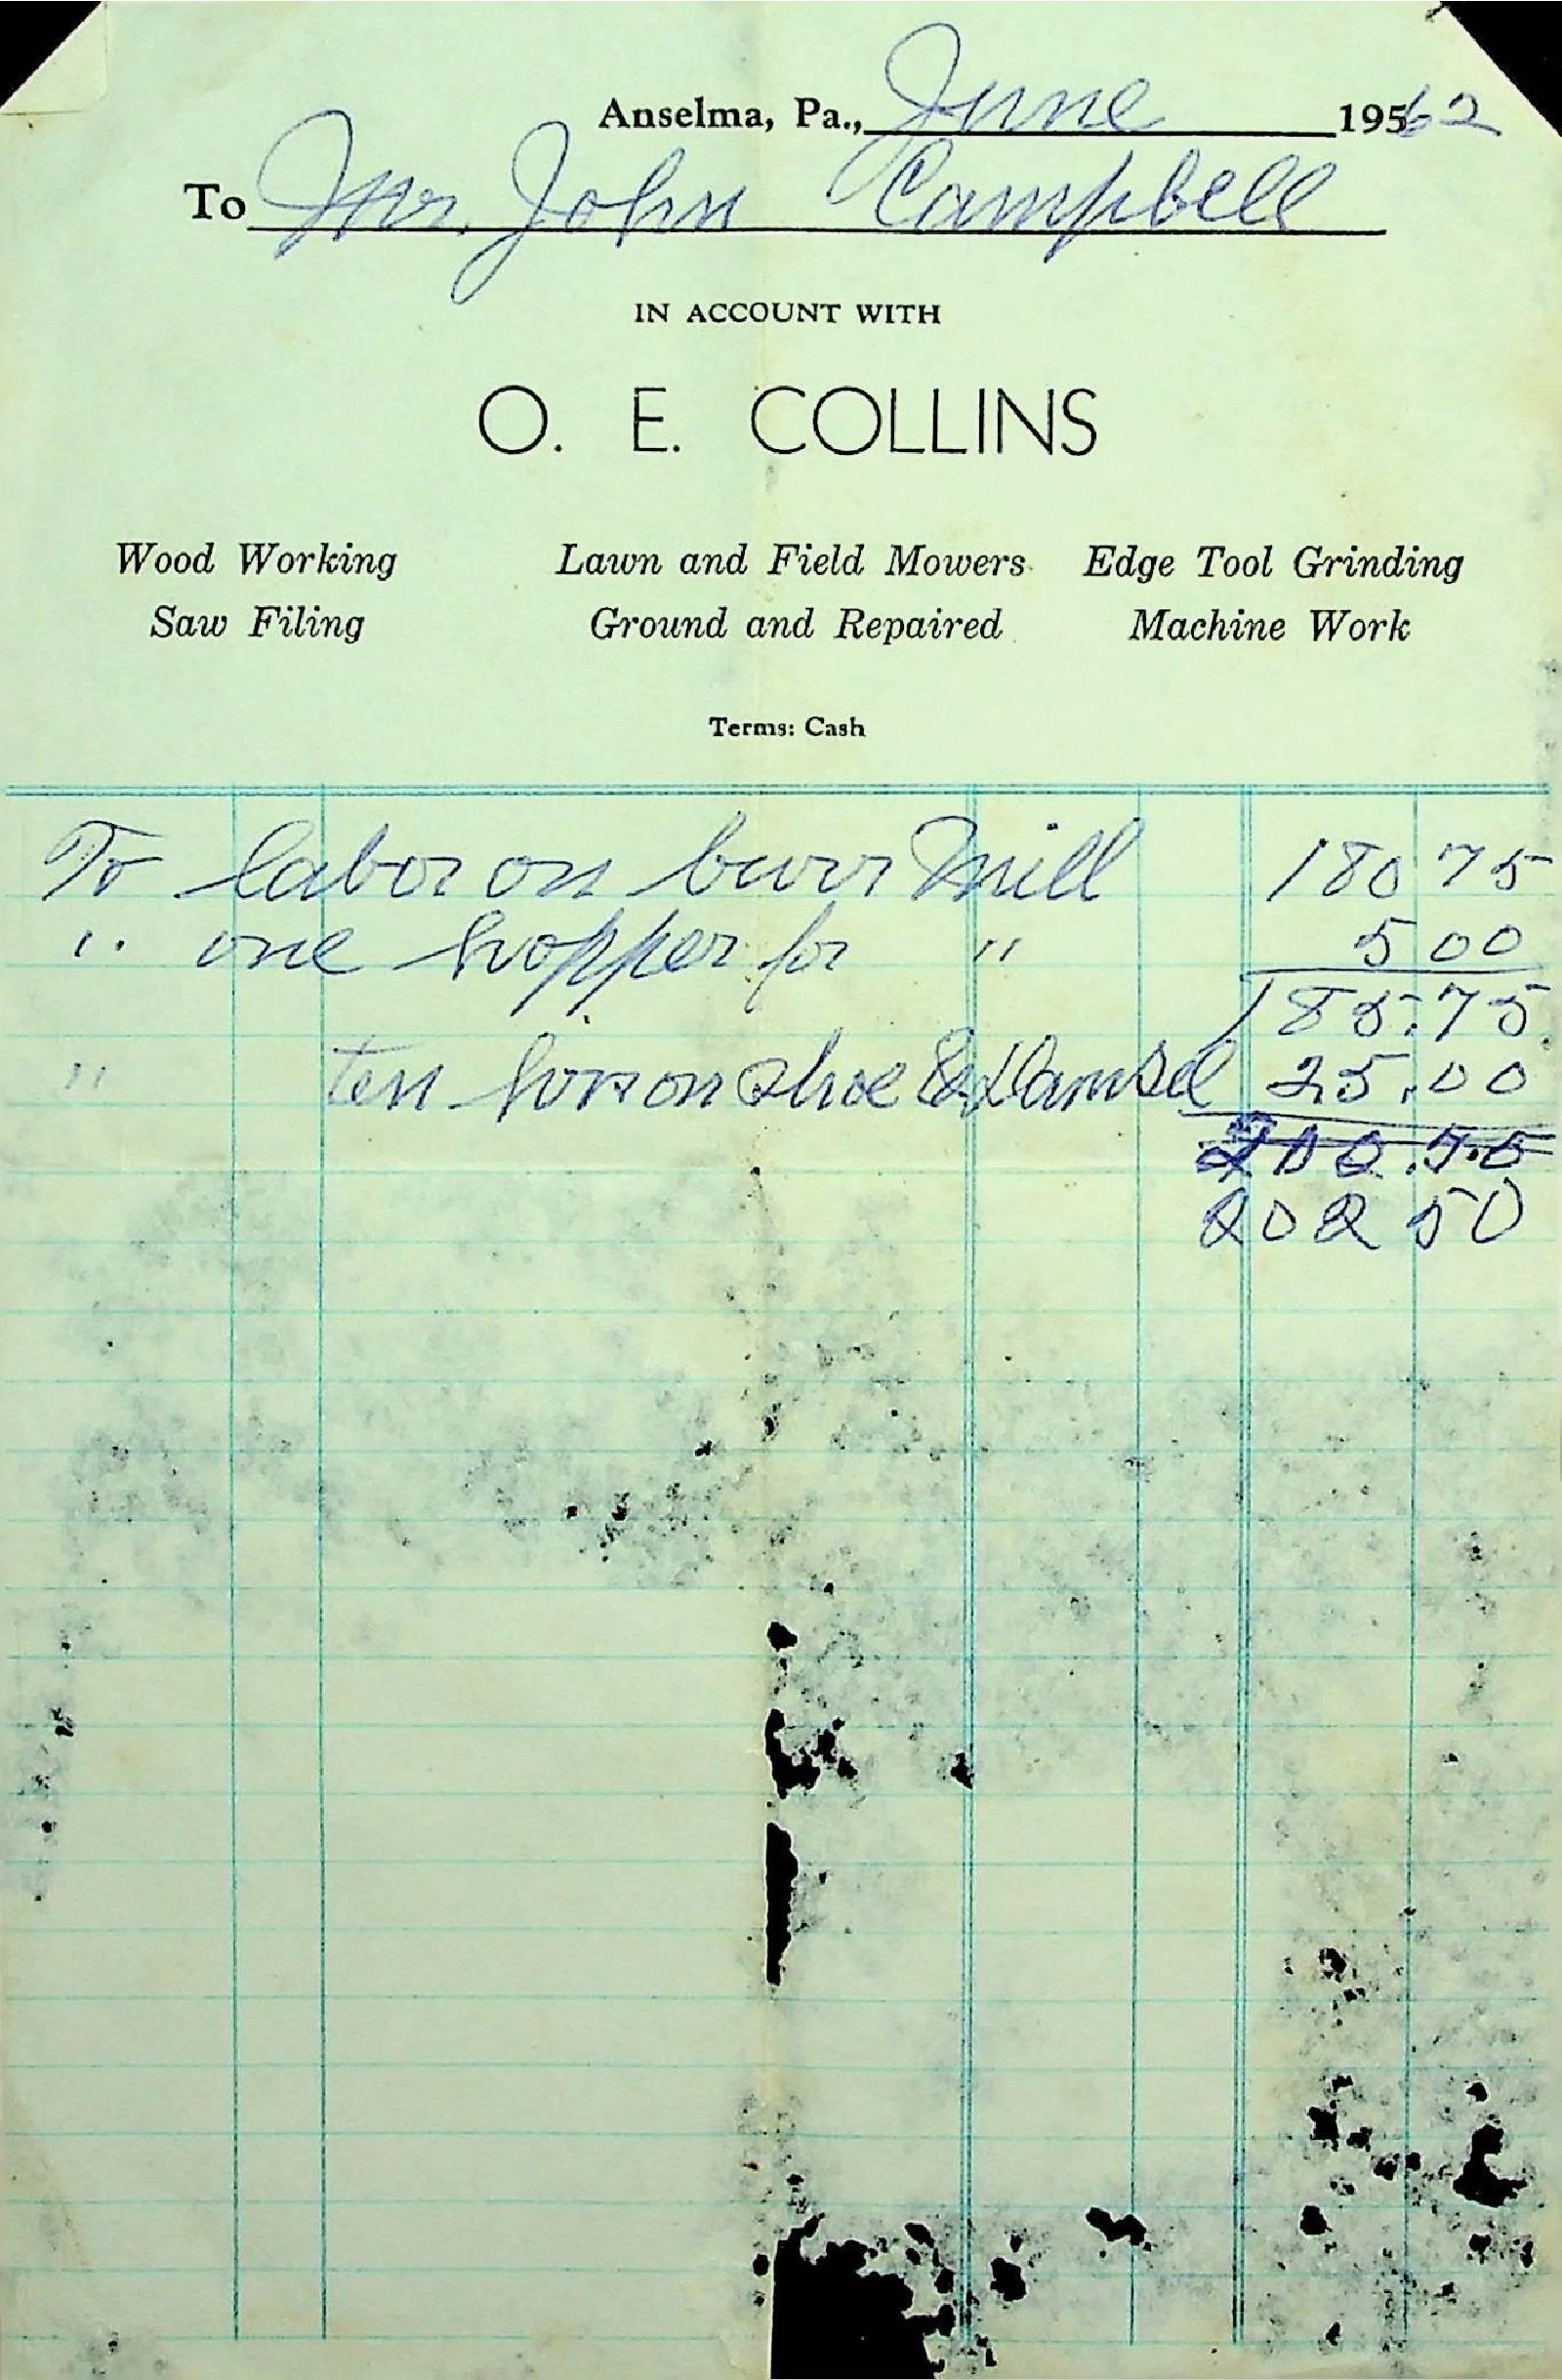 Anselma, Pa., June 19562
To Mr. John Campbell
IN ACCOUNT WITH
O. E. COLLINS
Wood Working Lawn and Field Mowers Edge Tool Grinding
Saw Filing Ground and Repaired Machine Work
Terms: Cash
To labor on burr Mill 180 75
" one hopper for " 5 00
185.75
" ten hors on Shoe & Damsel 25.00
202 50